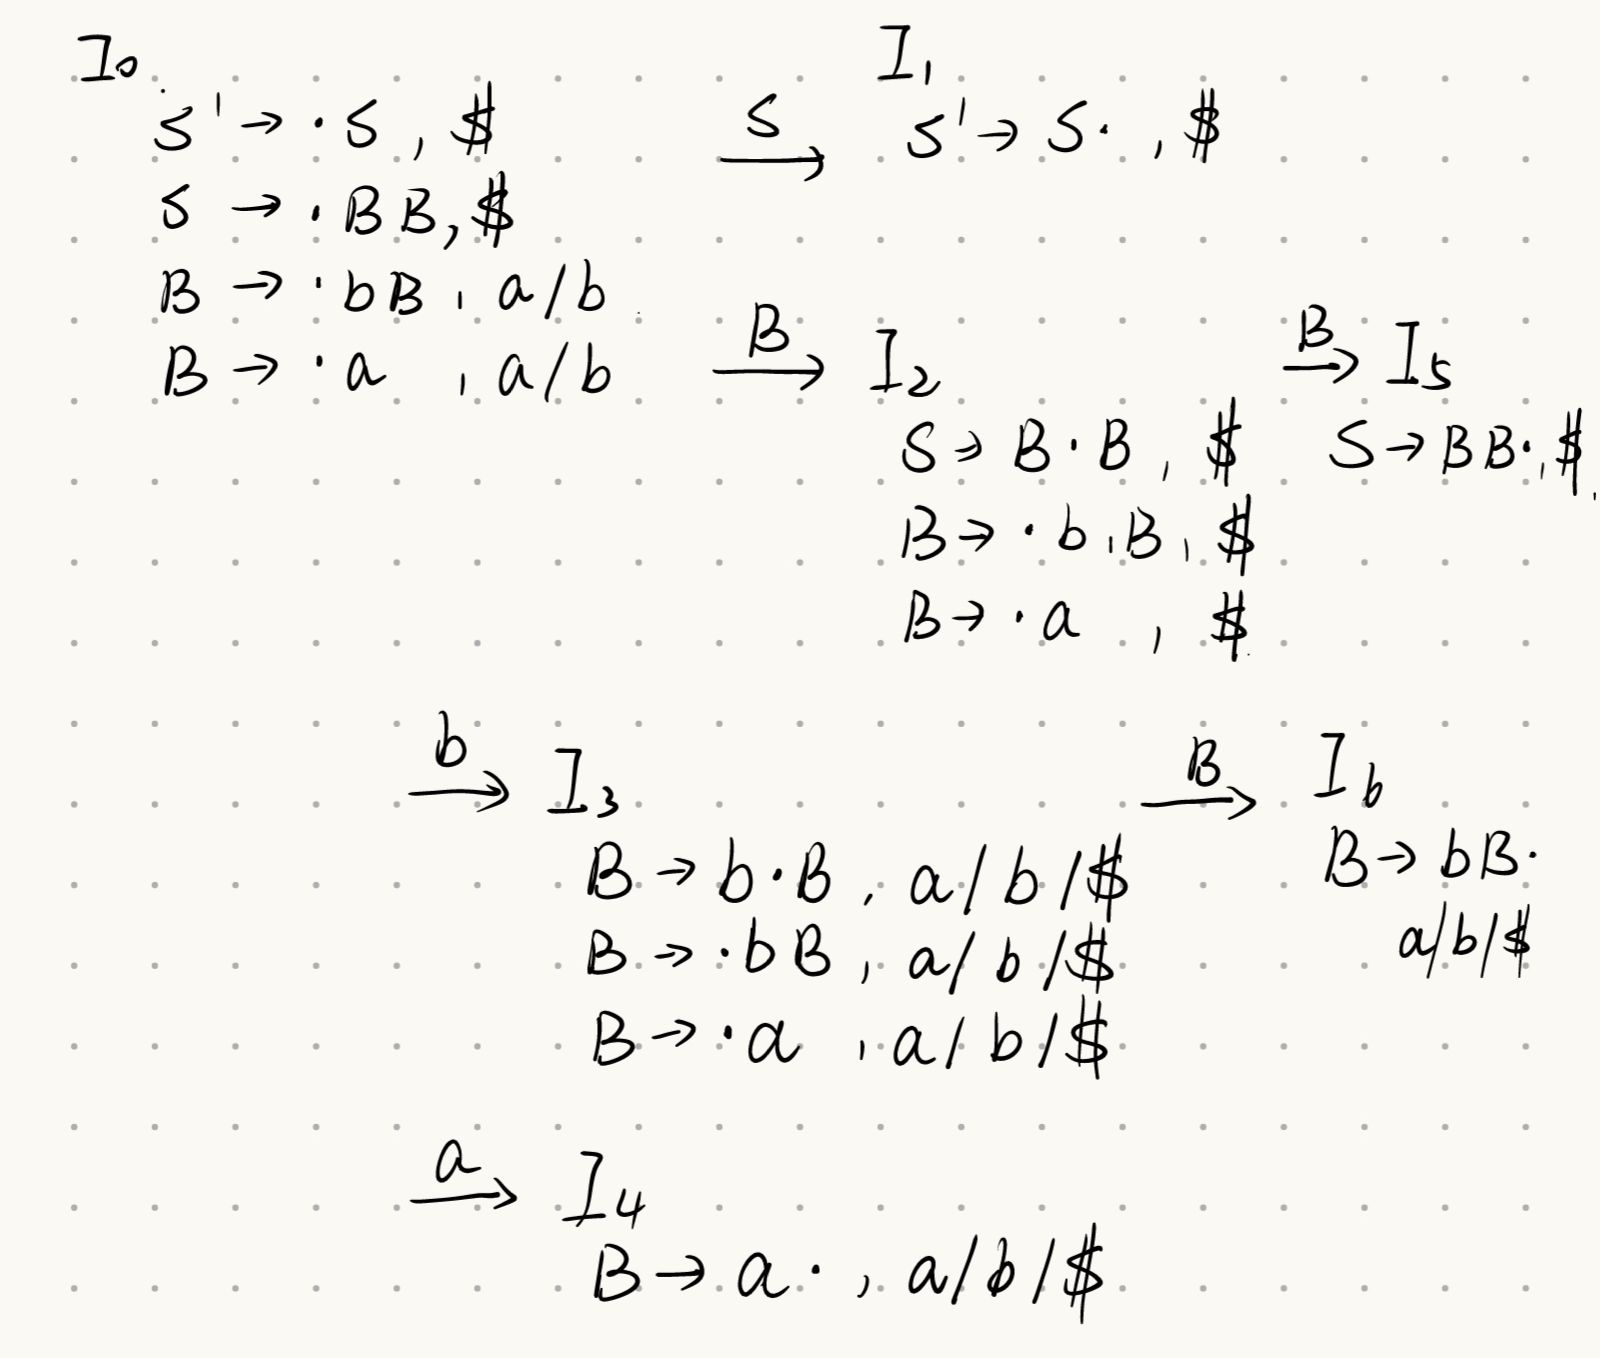 I₀
S' → ·S , $
S → ·BB, $
B → ·bB , a/b
B → ·a , a/b
S
I₁
S' → S· , $
B
I₂
S → B·B , $
B → ·b,B, $
B → ·a , $
B
I₅
S → BB·, $
b
I₃
B → b·B , a/b/$
B → ·bB , a/b/$
B → ·a , a/b/$
B
I₆
B → bB·
a/b/$
a
I₄
B → a· , a/b/$